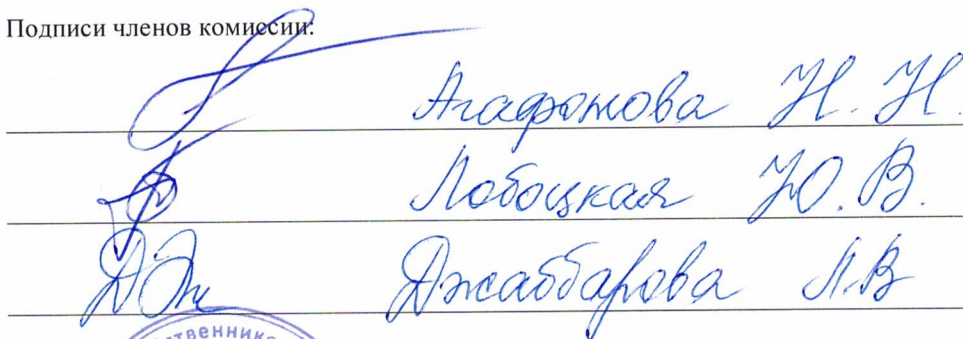 Подписи членов комиссии:
Агафонова Н. Н.
Лобоцкая Ю. В.
Дж Джаббарова Л.В